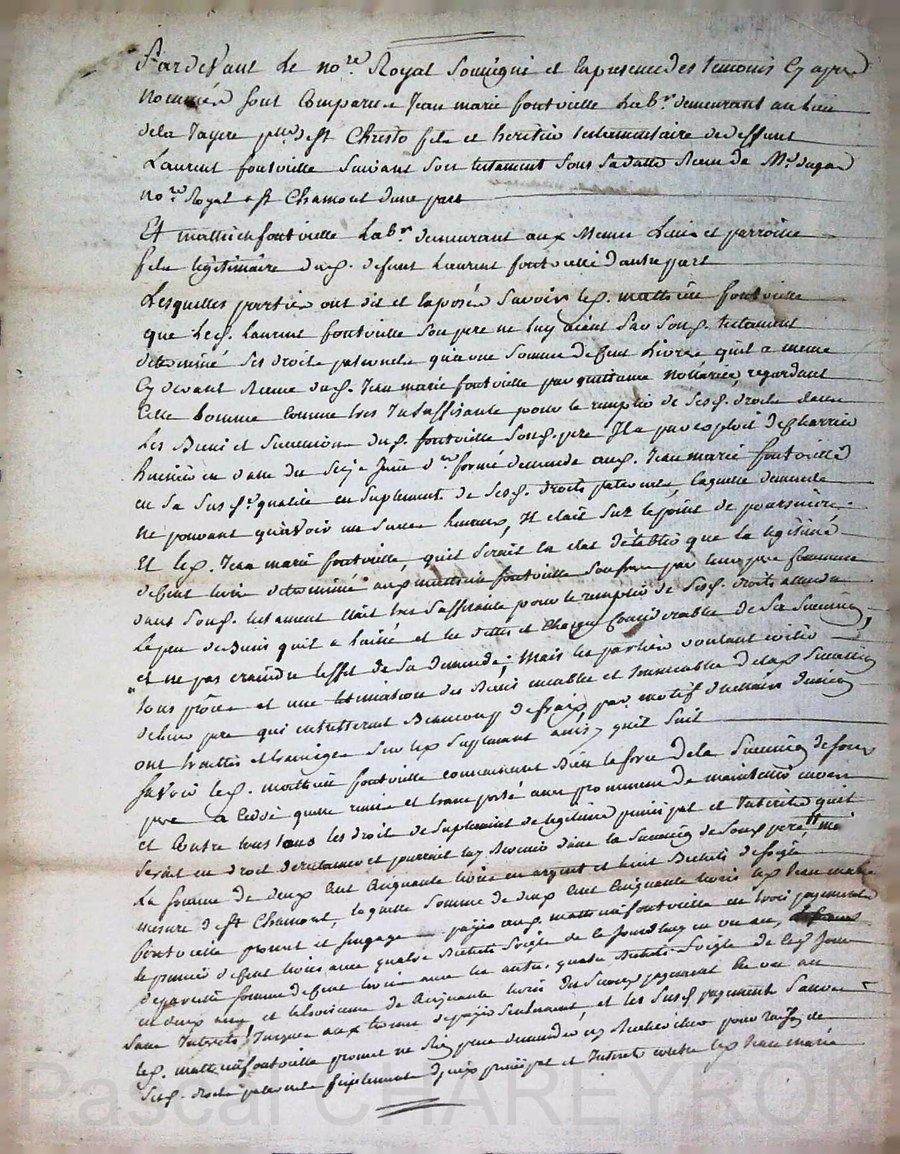 Pardevant Le no.re Royal Soussigné et la presence des temoins Cy apres
Nommés sont Comparus Jean marie fontvieille Lab.r demeurant au lieu
de la Vayre p.sse de st Christo fils et heritier testamentaire de deffunt
Laurent fontvieille Suivant son testament sous sa datte Receu de M.e dugas
no.re Royal a st Chamont d'une part
Et mathieu fontvieille Lab.r demeurant aux Memes Lieu et parroisse
fils legitimaire dud. defunt Laurent fontvieille d'autre part
Lesquelles parties ont dit et exposés Savoir led. mathieu fontvieille
que led. Laurent fontvieille son pere ne luy aiant par sond. testament
determiné ses droits paternels qu'a une somme de cent Livres qu'il a meme
Cy devant Receue dud. Jean marie fontvieille par quittance Nottariée, regardant
Cette somme comme tres Insuffisante pour le remplis de sesd. droits dans
Les Biens et Succession dud. fontvieille sond. pere Il a par exploit de
huissier en datte du Juin d.er formé demande aud. Jean marie fontvieille
en sa susd. qualité en suplement de sesd. droits paternels, laquelle demande
ne pouvant qu'avoir un succes heureux, Il etait sur le point de poursuivre
Et led. Jean marie fontvieille, qu'il serait en etat d'etablir que la legitime
de cent livres determinée aud. mathieu fontvieille son frere par leur pere commun
dans sond. testament etait tres suffisante pour le remplis de sesd. droits attendu
Le peu de Biens qu'il a laissé et les dettes et charges Considerables de sa Succession,
et ne pas craindre l'effet de sa demande; Mais les parties voulant eviter
tous procès et une estimation des Biens meubles et immeubles de lad. Succession
de leur pere qui entretterent Beaucoup de frais par motif d'union
ont traittés et transigés sur led. suplement ainsy qu'il suit
Savoir led. mathieu fontvieille connaissant Bien la force de la Succession de sond.
pere a Cedé quitté remis et transporté avec promesse de maintenir envers
et Contre tous tous les droits de suplement de legitime principal et Interets qu'il
serait en droit de reclamer et pourrait luy Revenir dans la Succession de sond. pere
La somme de deux Cent Cinquante livres en argent et huit Bichets de seigle
mesure de st Chamont, laquelle somme de deux Cent Cinquante livres led. Jean marie
fontvieille promet et s'engage payer aud. mathieu fontvieille en trois payements
le premier de Cent livres avec quatre Bichets Seigle de ce jourdhuy en un an,
de pareille somme de Cent livres avec les autres quatre Bichets Seigle de ced. Jour
en deux ans et le troisieme de Cinquante livres du second payement en un an
sans Interets Jusques aux termes de payer seulement, et les susd. payements
led. mathieu fontvieille promet ne Rien plus demander ny Rechercher pour raison de
sesd. droits paternels suplement d'yceux principal et Interets contre led. Jean marie
Pascal CHAREYRON